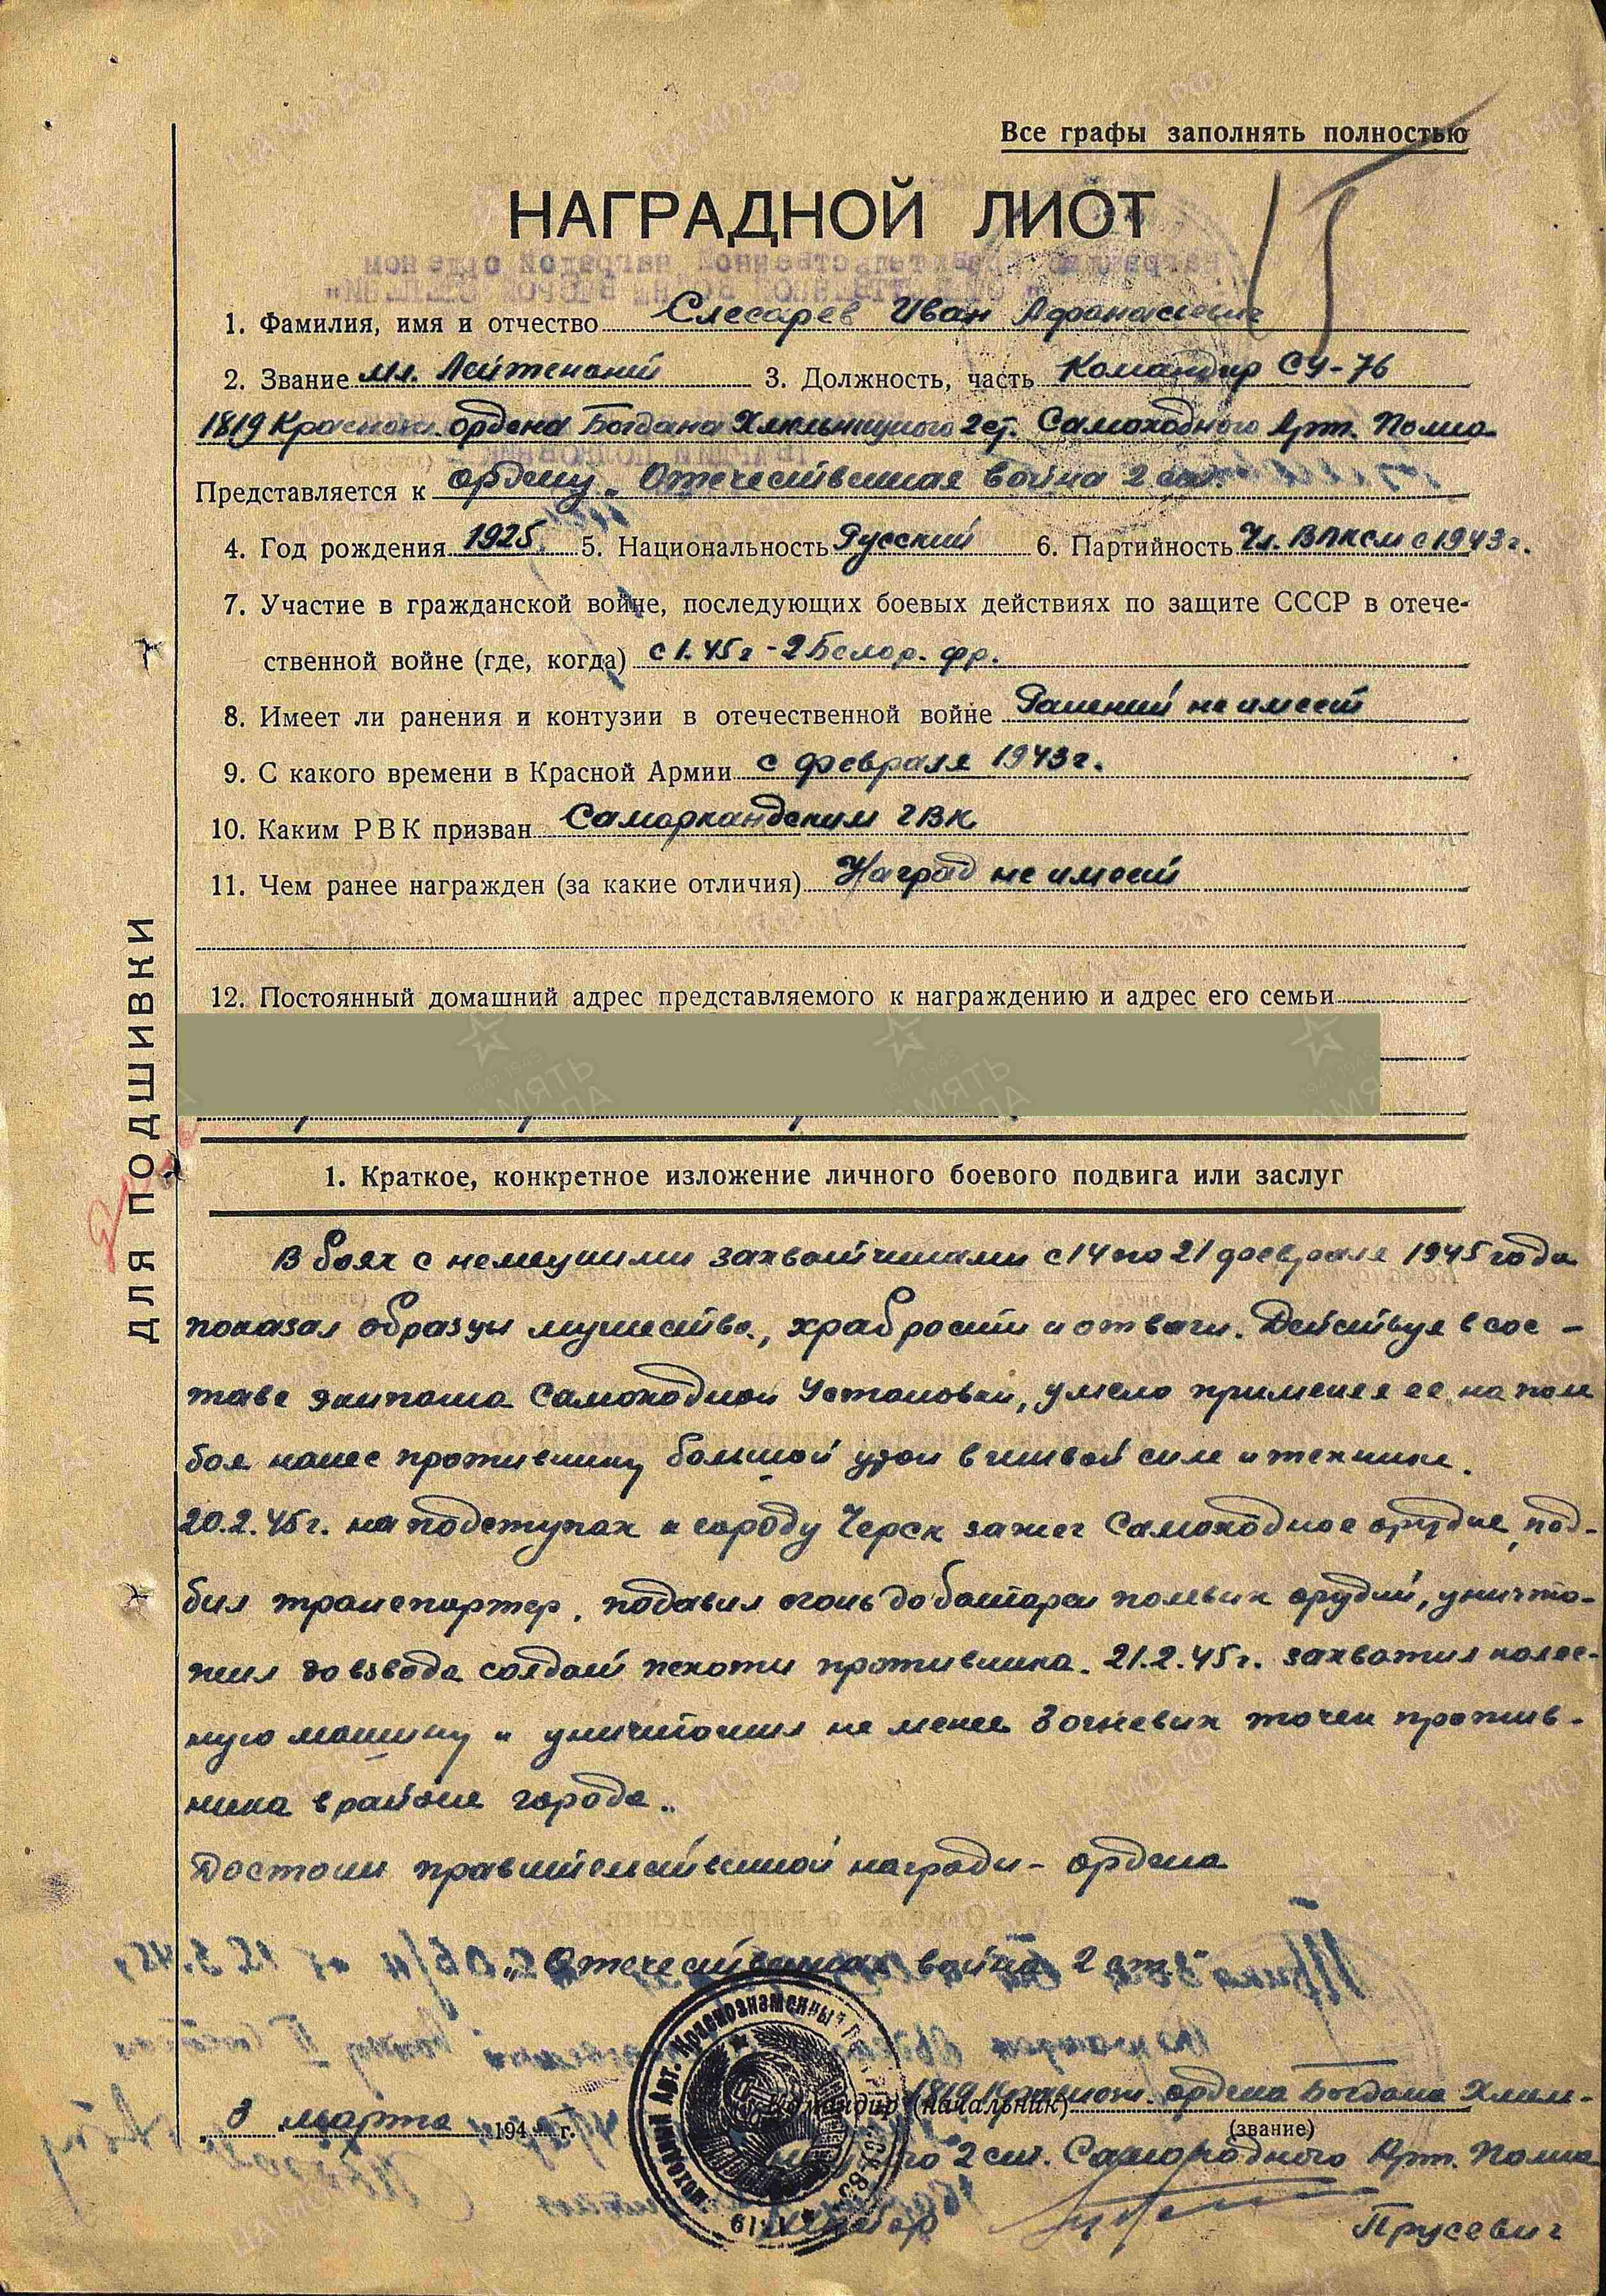 Все графы заполнять полностью
НАГРАДНОЙ ЛИОТ
1. Фамилия, имя и отчество Слесарев Иван Афанасьевич
2. Звание мл. Лейтенант 3. Должность, часть Командир СУ-76
1819 Краснозн. ордена Богдана Хмельницкого 2 ст. Самоходного Арт. Полка
Представляется к ордену „Отечественная война 2 ст.
4. Год рождения 1925 5. Национальность Русский 6. Партийность Чл. ВЛКСМ с 1943 г.
7. Участие в гражданской войне, последующих боевых действиях по защите СССР в отече-
ственной войне (где, когда) с 1.45 г - 2 Белор. фр.
8. Имеет ли ранения и контузии в отечественной войне Ранений не имеет
9. С какого времени в Красной Армии с февраля 1943 г.
10. Каким РВК призван Самаркандским ГВК
11. Чем ранее награжден (за какие отличия) Наград не имеет
12. Постоянный домашний адрес представляемого к награждению и адрес его семьи
ДЛЯ ПОДШИВКИ
1. Краткое, конкретное изложение личного боевого подвига или заслуг
В боях с немецкими захватчиками с 14 по 21 февраля 1945 года
показал образцы мужества, храбрости и отваги. Действуя в сос-
таве экипажа Самоходной Установки, умело применяя ее на поле
боя нанес противнику большой урон в живой силе и технике.
20.2.45 г. на подступах к городу Черск зажег Самоходное орудие, под-
бил транспортер, подавил огонь до батареи полевых орудий, уничто-
жил до взвода солдат пехоты противника. 21.2.45 г. захватил колес-
ную машину и уничтожил не менее 3 огневых точек против-
ника в районе города.
Достоин правительственной награды - ордена
„Отечественная война 2 ст."
Командир (начальник) 1819 Краснозн. ордена Богдана Хмель-
„3 марта 194 г. (звание)
ницкого 2 ст. Самоходного Арт. Полка
майор Прусевич